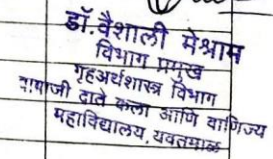 डॉ. वैशाली मेश्राम
विभाग प्रमुख
गृहअर्थशास्त्र विभाग
दाते कला आणि वाणिज्य
महाविद्यालय, यवतमाळ